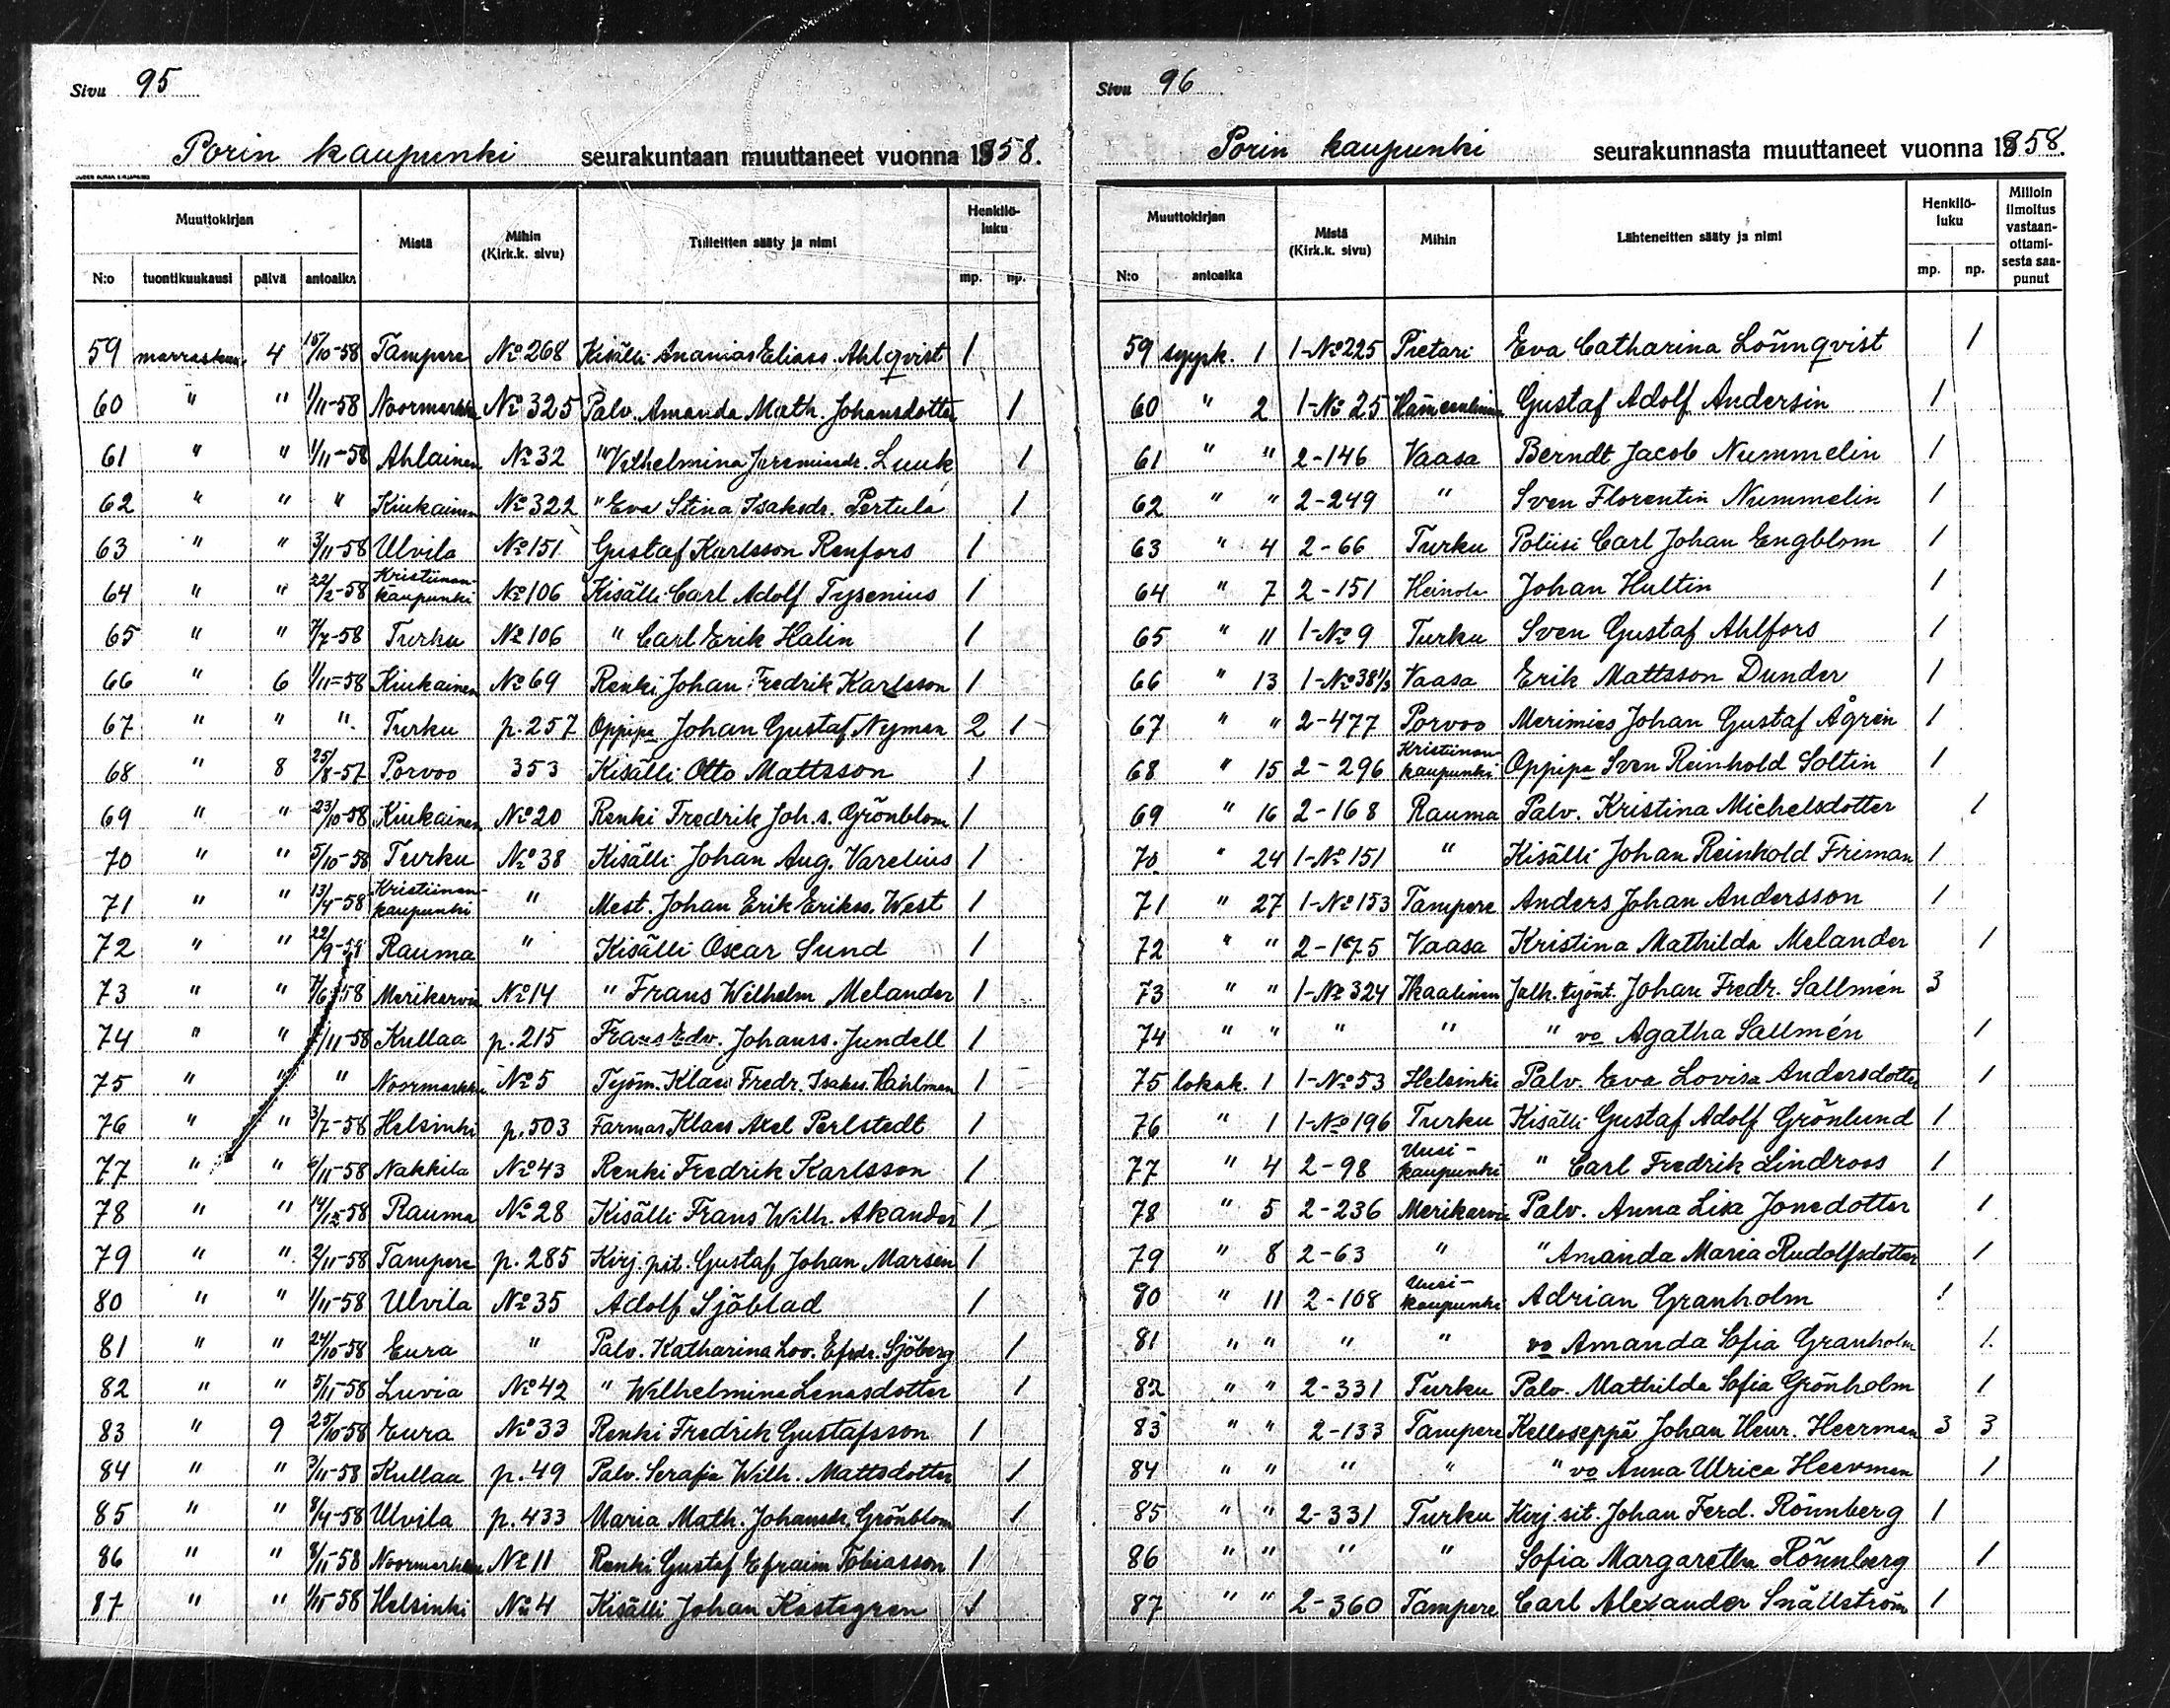 Sivu 95
Porin kaupunki seurakuntaan muuttaneet vuonna 1858.
Muuttokirjan Mistä Mihin (Kirk.k. sivu) Tulleitten sääty ja nimi Henkilö-luku
N:o tuontikuukausi päivä antoaika mp. np.
59 marraskuu. 4 15/10-58 Tampere No 268 Kisälli Ananias Eliass. Ahlqvist 1
60 " " 1/11-58 Noormarkku No 325 Palv. Amanda Math. Johansdotter 1
61 " " 1/11-58 Ahlainen No 32 " Vilhelmina Jeremiasdr. Luuk 1
62 " " " Kiukainen No 322 " Eva Stina Isaksdr. Pertula 1
63 " " 3/11-58 Ulvila No 151 Gustaf Karlsson Renfors 1
64 " " 22/2-58 Kristiinan-kaupunki No 106 Kisälli Carl Adolf Tysenius 1
65 " " 7/7-58 Turku No 106 " Carl Erik Halin 1
66 " 6 1/11-58 Kiukainen No 69 Renki Johan Fredrik Karlsson 1
67 " " " Turku p. 257 Oppipa Johan Gustaf Nyman 2 1
68 " 8 25/8-57 Porvoo 353 Kisälli Otto Mattsson 1
69 " " 23/10-58 Kiukainen No 20 Renki Fredrik Joh.s. Grönblom 1
70 " " 5/10-58 Turku No 38 Kisälli Johan Aug. Varelius 1
71 " " 13/4-58 Kristiinan-kaupunki " Mest. Johan Erik Erikss. West 1
72 " " 22/9-58 Rauma " Kisälli Oscar Sund 1
73 " " 7/6-58 Merikarvia No 14 " Frans Wilhelm Melander 1
74 " " /11-58 Kullaa p. 215 Frans Edv. Johanss. Jundell 1
75 " " " Noormarkku No 5 Työm. Klas Fredr. Isakss. 1
76 " " 3/7-58 Helsinki p. 503 Farmas. Klaes Axel Perlstedt 1
77 " " 6/11-58 Nakkila No 43 Renki Fredrik Karlsson 1
78 " " Rauma No 28 Kisälli Frans Wilh. Akander 1
79 " " 2/11-58 Tampere p. 285 Kirj. pit. Gustaf Johan Marsen 1
80 " " 1/11-58 Ulvila No 35 Adolf Sjöblad 1
81 " " 24/10-58 Eura " Palv. Katharina Lov. Efrdr. Sjöberg 1
82 " " 5/11-58 Luvia No 42 " Wilhelmina Lenasdotter 1
83 " 9 25/10-58 Eura No 33 Renki Fredrik Gustafsson 1
84 " " 3/11-58 Kullaa p. 49 Palv. Serafia Wilh. Mattsdotter 1
85 " " 8/4-58 Ulvila p. 433 Maria Math. Johansdr. Grönblom 1
86 " " 8/11-58 Noormarkku No 11 Renki Gustaf Efraim Tobiasson 1
87 " " 1/11-58 Helsinki No 4 Kisälli Johan Kastegren 1
Sivu 96
Porin kaupunki seurakunnasta muuttaneet vuonna 1858.
Muuttokirjan Mistä (Kirk.k. sivu) Mihin Lähteneitten sääty ja nimi Henkilö-luku Milloin ilmoitus vastaan-ottami-sesta saa-punut
N:o antoaika mp. np.
59 syysk. 1 1-No 225 Pietari Eva Catharina Lönnqvist 1
60 " 2 1-No 25 Hämeenlinna Gustaf Adolf Andersin 1
61 " " 2-146 Vaasa Berndt Jacob Nummelin 1
62 " " 2-249 " Sven Florentin Nummelin 1
63 " 4 2-66 Turku Poliisi Carl Johan Engblom 1
64 " 7 2-151 Heinola Johan Hultin 1
65 " 11 1-No 9 Turku Sven Gustaf Ahlfors 1
66 " 13 1-No 38 1/3 Vaasa Erik Mattsson Dunder 1
67 " " 2-477 Porvoo Merimies Johan Gustaf Ågren 1
68 " 15 2-296 Kristiinan-kaupunki Oppipa Sven Reinhold Soltin 1
69 " 16 2-168 Rauma Palv. Kristina Michelsdotter 1
70 " 24 1-No 151 " Kisälli Johan Reinhold Friman 1
71 " 27 1-No 153 Tampere Anders Johan Andersson 1
72 " " 2-175 Vaasa Kristina Mathilda Melander 1
73 " " 1-No 324 Ikaalinen Jalk. työnt. Johan Fredr. Sallmén 3
74 " " " " " vo Agatha Sallmén 1
75 lokak. 1 1-No 53 Helsinki Palv. Eva Lovisa Andersdotter 1
76 " 1 1-No 196 Turku Kisälli Gustaf Adolf Grönlund 1
77 " 4 2-98 Uusi-kaupunki " Carl Fredrik Lindroos 1
78 " 5 2-236 Merikarvia Palv. Anna Lisa Jonedotter 1
79 " 8 2-63 " " Amanda Maria Rudolfsdotter 1
80 " 11 2-108 Uusi-kaupunki Adrian Granholm 1
81 " " " " vo Amanda Sofia Granholm 1
82 " " 2-331 Turku Palv. Mathilda Sofia Grönholm 1
83 " " 2-133 Tampere Kelloseppä Johan Henr. Heerman 3 3
84 " " " " " vo Anna Ulrica Heerman 1
85 " " 2-331 Turku Kirj. sit. Johan Ferd. Rönnberg 1
86 " " " " Sofia Margaretha Rönnberg 1
87 " " 2-360 Tampere Carl Alexander Snällström 1